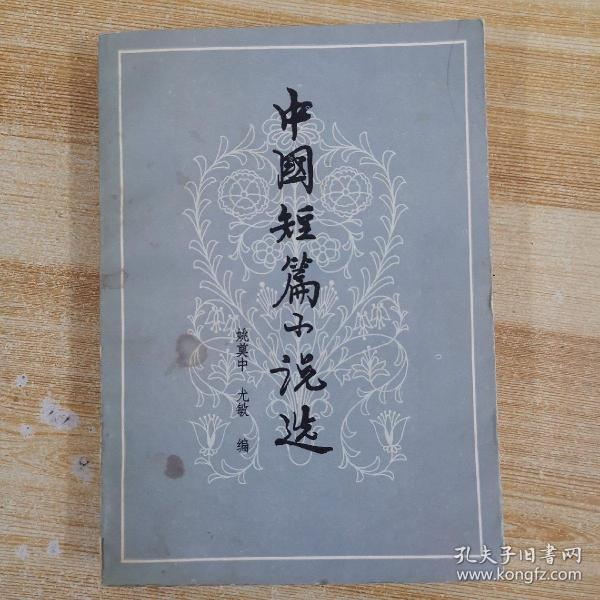 中國短篇小说选
姚莫中 尤敏 编
孔夫子旧书网
www.kongfz.com